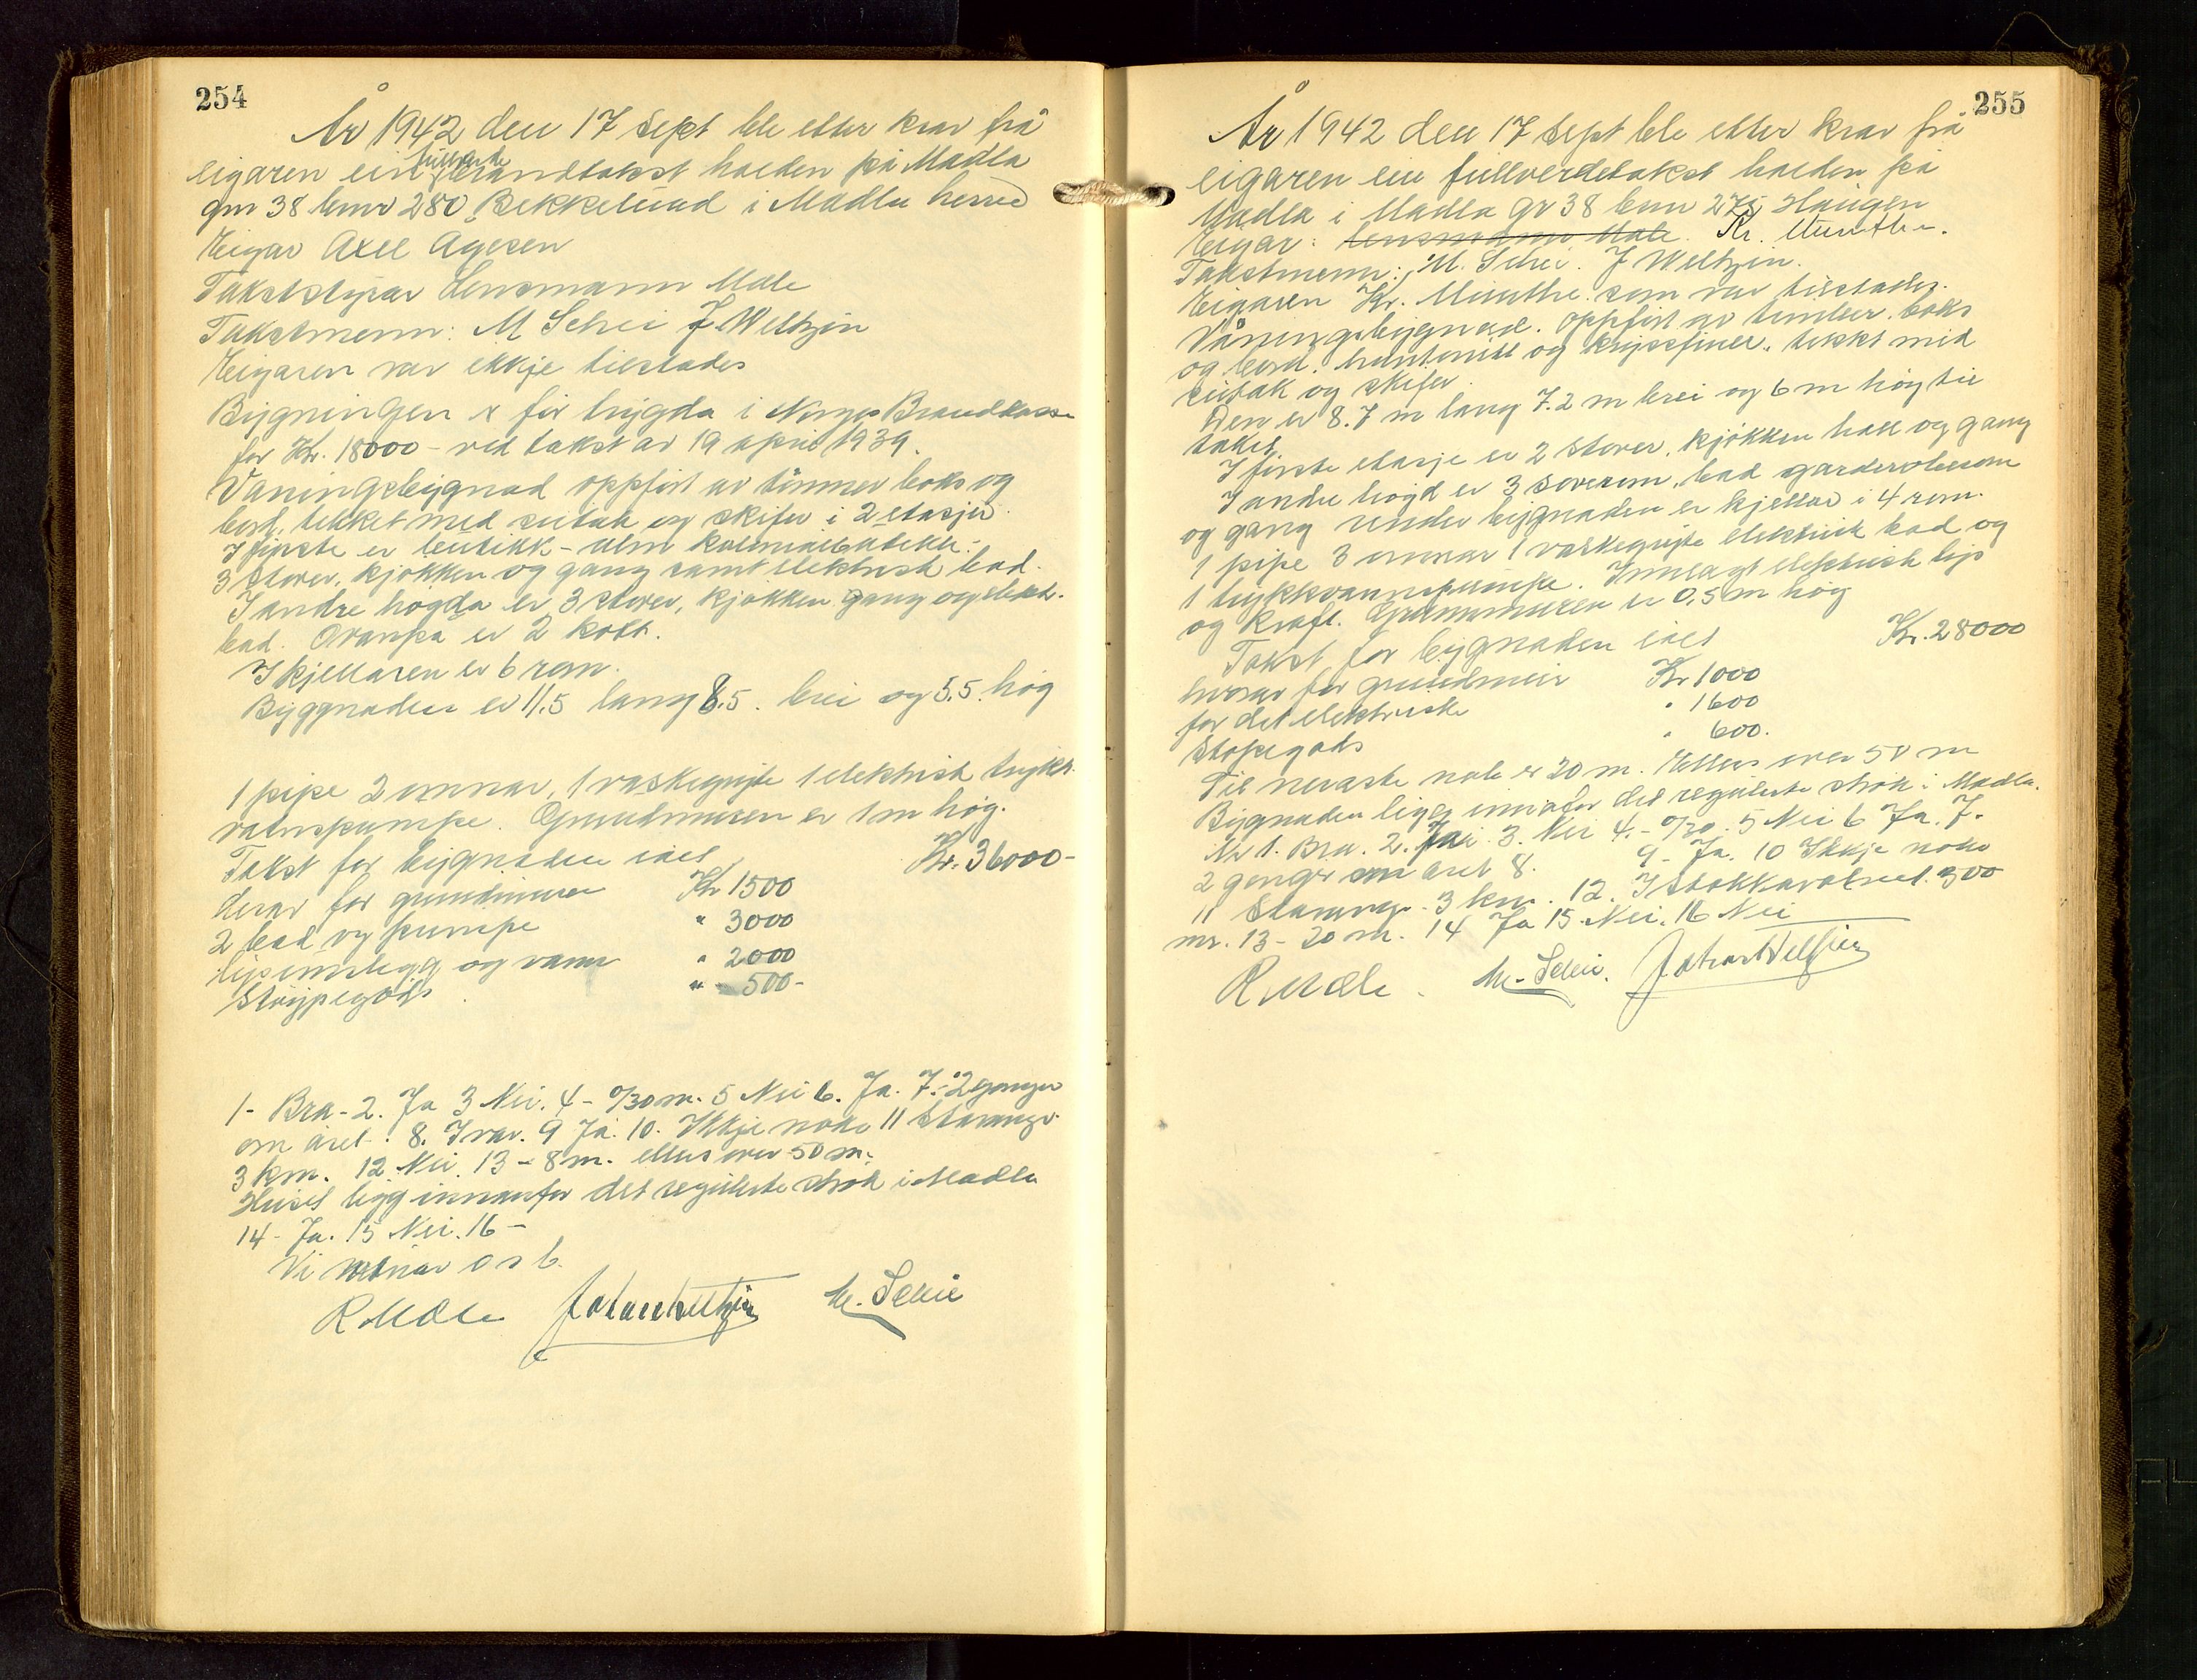 254
År 1942 den 17 Sept ble etter krav frå
eigaren ein fullverde brandtakst halden på Madla
gnr 38 bnr 280 Bekkelund i Madla herred
Eigar Axel Ågesen
Takststyrar Lensmann Male
Takstmenn: M Schei J. Weltzin
Eigaren var ikkje tilstades
Bygningen er før trygda i Norges Brandkasse
for Kr. 18000 - ved takst av 19 april 1939.
Våningsbygnad oppført av tømmer boks og
bord, tekket med sutak og skifer i 2 etasjer.
I første er butikk - uten kolonialbutikk -
3 Stover, kjøkken og gang samt elektrisk bad.
I andre høgda er 3 stover, kjøkken gang og elektr.
bad. Ovanpå er 2 kott.
I kjellaren er 6 rom.
Byggnaden er 11.5 lang 8.5. brei og 5.5. høg
1 pipe 2 omnar, 1 vaskegryte 1 elektrisk trykk
vatnspumpe. Grundmuren er 1 m høg.
Takst for bygnaden ialt Kr. 36000-
derav for grundmuren Kr 1500
2 bad og pumpe " 3000
lysinnlegg og vann " 2000
Støypegods " 500-
1- Bra - 2. Ja 3 Nei. 4 - 0/30 m. 5 Nei 6. Ja. 7. 2 ganger
om året. 8. I var. 9 Ja. 10. Ikkje noke 11 Stavanger
3 km. 12 Nei. 13 - 8 m. ellers over 50 m.
Huset ligg innanfor det regulerte strøk i Madla
14 - Ja. 15 Nei. 16 -
Vi meinar o s b.
R Male Johan Weltzin M. Schei
255
År 1942 den 17 Sept ble etter krav frå
eigaren ein fullverdetakst halden på
Madla i Madla gr 38 bnr 275 Haugen
Eigar: Lensmann Male. Kr. Munthe.
Takstmenn: M. Schei. J Weltzin.
Eigaren Kr. Munthe som var tilstades.
Våningsbygnad. oppført av tømmer, boks
og bord, huntonitt og kryssfiner. tekkt med
sutak og skifer.
Den er 8.7 m lang 7.2 m brei og 6 m høg til
taket.
I første etasje er 2 stover, kjøkken hall og gang
I andre høgd er 3 soverom, bad garderoberom
og gang under bygnaden er kjellar i 4 rom.
1 pipe 3 omnar 1 vaskegryte elektrisk bad og
1 trykkvannspumpe. Innlagt elektrisk lys
og kraft. Grunnmuren er 0,5 m høg
Takst for bygnaden ialt Kr. 28000
hvorav for grundmur Kr 1000
for det elektriske " 1600
Støpegods " 600.
Til nermaste nabo er 20 m. Ellers over 50 m
Bygnaden ligg innafor det regulerte strøk i Madla.
Nr 1. Bra. 2. Ja. 3. Nei 4. - 0/30. 5 Nei 6 Ja. 7.
2 ganger om året 8. 9 - Ja. 10 Ikkje noke
11 Stavanger 3 km. 12. I Stokkavatnet 300
mr. 13 - 20 m. 14 Ja 15 Nei. 16 Nei
R Male. M. Schei. Johan Weltzin